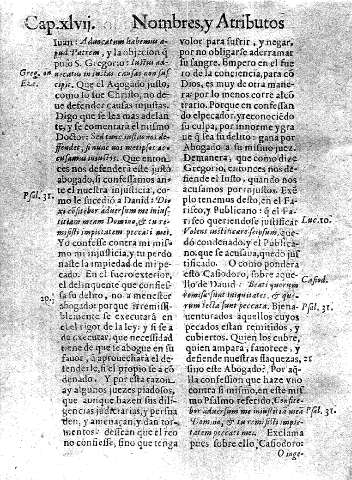 Cap.xlvij. Nombres, y Atributos
Iuan: Aduocatum habemus a
pud Patrem, y la objeciõn q
puso S. Gregorio: Iustus ad-
uocatus iniustas causas non sus
cipit. Que el Abogado justo,
como lo fue Christo, no de-
ue defender causas injustas.
Digo que se lea mas adelan-
te, y se comentarà el mismo
Doctor: Sed tunc iustus nos de-
fendet, si nunc nos metipsos ac-
cusamus iniustos. Que enton-
ces nos defenderà este justo
abogado, si confessamos an-
te el nuestra injusticia, co-
mo le sucediò a Dauid: Di
xi confitebor aduersum me inius-
titiam meam Domino, & tu re-
misisti impietatem peccati mei.
Yo confesse contra mi mis-
mo mi injusticia, y tu perdo
naste la impiedad de mi pe-
cado. En el fuero exterior,
el delinquente que confies-
sa su delito, no a menester
abogado por que irremissi-
blemente se executarà en
el el rigor de la ley: y si se a
de executar, que necessidad
tiene de que le abogue en su
fauor, ã aprouecharà el de-
fenderle, si el propio se a cõ
denado. Y por esta razon,
ay algunos juezes piadosos,
que aunque hazen sus dili-
gencias judiciarias, y persua
den, y amenaçan, y dan tor-
mentos: dessean que el reo
no confiesse, sino que tenga
Greg. in
Eze.
Psal. 31.
19.
valor para sufrir, y negar,
por no obligarse aderramar
su sangre. Empero en el fue
ro de la conciencia, para cõ
Dios, es muy de otra mane-
ra: por lo menos corre al cõ
trario. Porque en confessan
do el pecador, y reconociẽdo
su culpa, por innorme y gra
ue q̃ sea su delito: gana por
Abogado a su mismo juez.
Demanera, que como dize
Gregorio, entonces nos de-
fiende el Iusto, quando nos
acusamos por injustos. Exẽ
plo tenemos desto, en el Fa-
riseo, y Publicano: q̃ el Fa-
riseo queriendose justificar
Volens iustificare seipsum, que-
dó condenado, y el Publica-
no que se acusaua, quedó jus
tificado. O como pondera
esto Casiodoro, sobre aque
llo de Dauid: Beati quorum
remissæ sunt iniquitates, & quo-
rum tecta sunt peccata. Biena-
uenturados aquellos cuyos
pecados estan remitidos, y
cubiertos. Quien los cubre,
quien ampara, fauorece, y
defiende nuestras flaquezas,
sino este Abogado? Por aq̃
lla confession que haze vno
contra si mismo, en este mis
mo Psalmo referido, Confite-
bor aduersum me iniustitiã meã
Domino, & tu remisisti impie-
tatem peccati mei. Exclama
pues sobre ello, Casiodoro:
Luc. 10.
Casiod.
Psal. 31.
21
Psal. 31.
O inge-